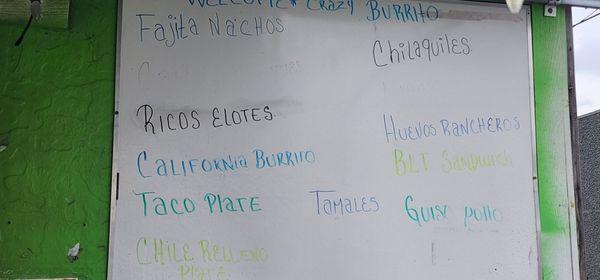 WELCOME CRAZY BURRITO
Fajita Nachos
Chilaquiles
Ricos Elotes
Huevos Rancheros
California Burrito
BLT Sandwich
Taco Plate
Tamales
Guiso pollo
Chile Relleno
Plate